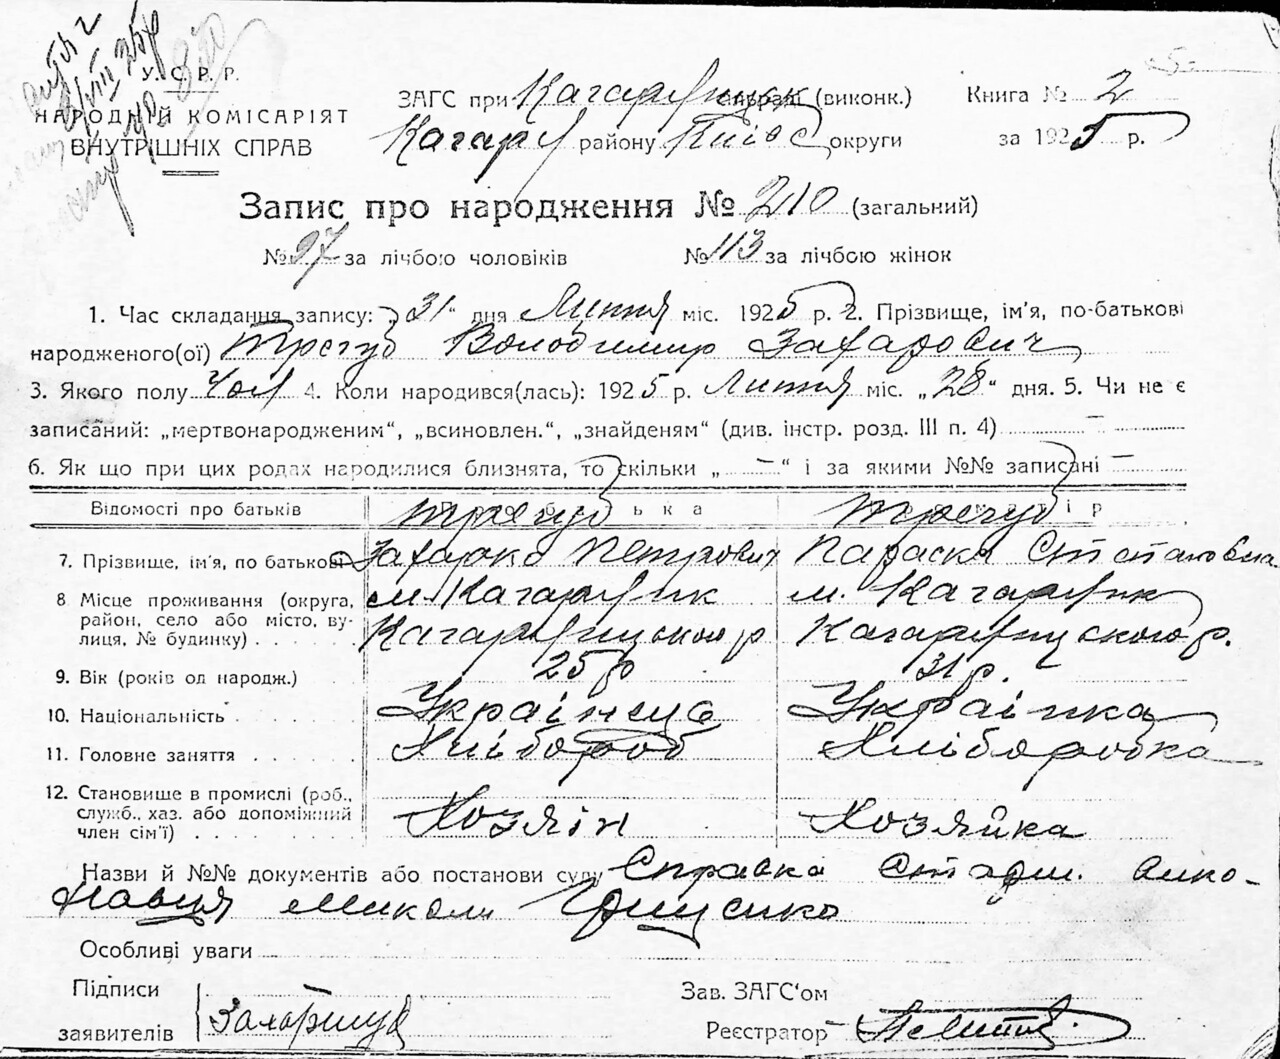 У.С.Р.Р.
НАРОДНІЙ КОМІСАРІЯТ
ВНУТРІШНІХ СПРАВ
ЗАГС при Кагарлицьк (виконк.)
Кагарл району Київс округи
Книга № 2
за 1925 р.
Запис про народження № 210 (загальний)
№ 97 за лічбою чоловіків № 113 за лічбою жінок
1. Час складання запису: „31“ дня Липня міс. 1925 р. 2. Прізвище, ім'я, по-батькові
народженого(ої) Трегуб Володимир Захарович
3. Якого полу Чол 4. Коли народився(лась): 1925 р. Липня міс. „28“ дня. 5. Чи не є
записаний: „мертвонародженим“, „всиновлен.“, „знайденям“ (див. інстр. розд. III п. 4) —
6. Як що при цих родах народилися близнята, то скільки „ — “ і за якими №№ записані —
Відомості про батьків Трегуб Трегуб
7. Прізвище, ім'я, по батькові Захарко Петрович Параска Степановна
8 Місце проживання (округа, м. Кагарлик м. Кагарлик
район, село або місто, ву-
лиця, № будинку) . . . . Кагарлицького р Кагарлицького р.
9. Вік (років од народж.) 25 р 31 р.
10. Національність Українець Українка
11. Головне заняття Хлібороб Хліборобка
12. Становище в промислі (роб.,
служб., хаз. або допоміжний
член сім'ї) Хозяїн Хозяйка
Назви й №№ документів або постанови суду Справка вико-
навця Миколи Грищенко
Особливі уваги
Підписи
заявителів
Зав. ЗАГС'ом
Реєстратор